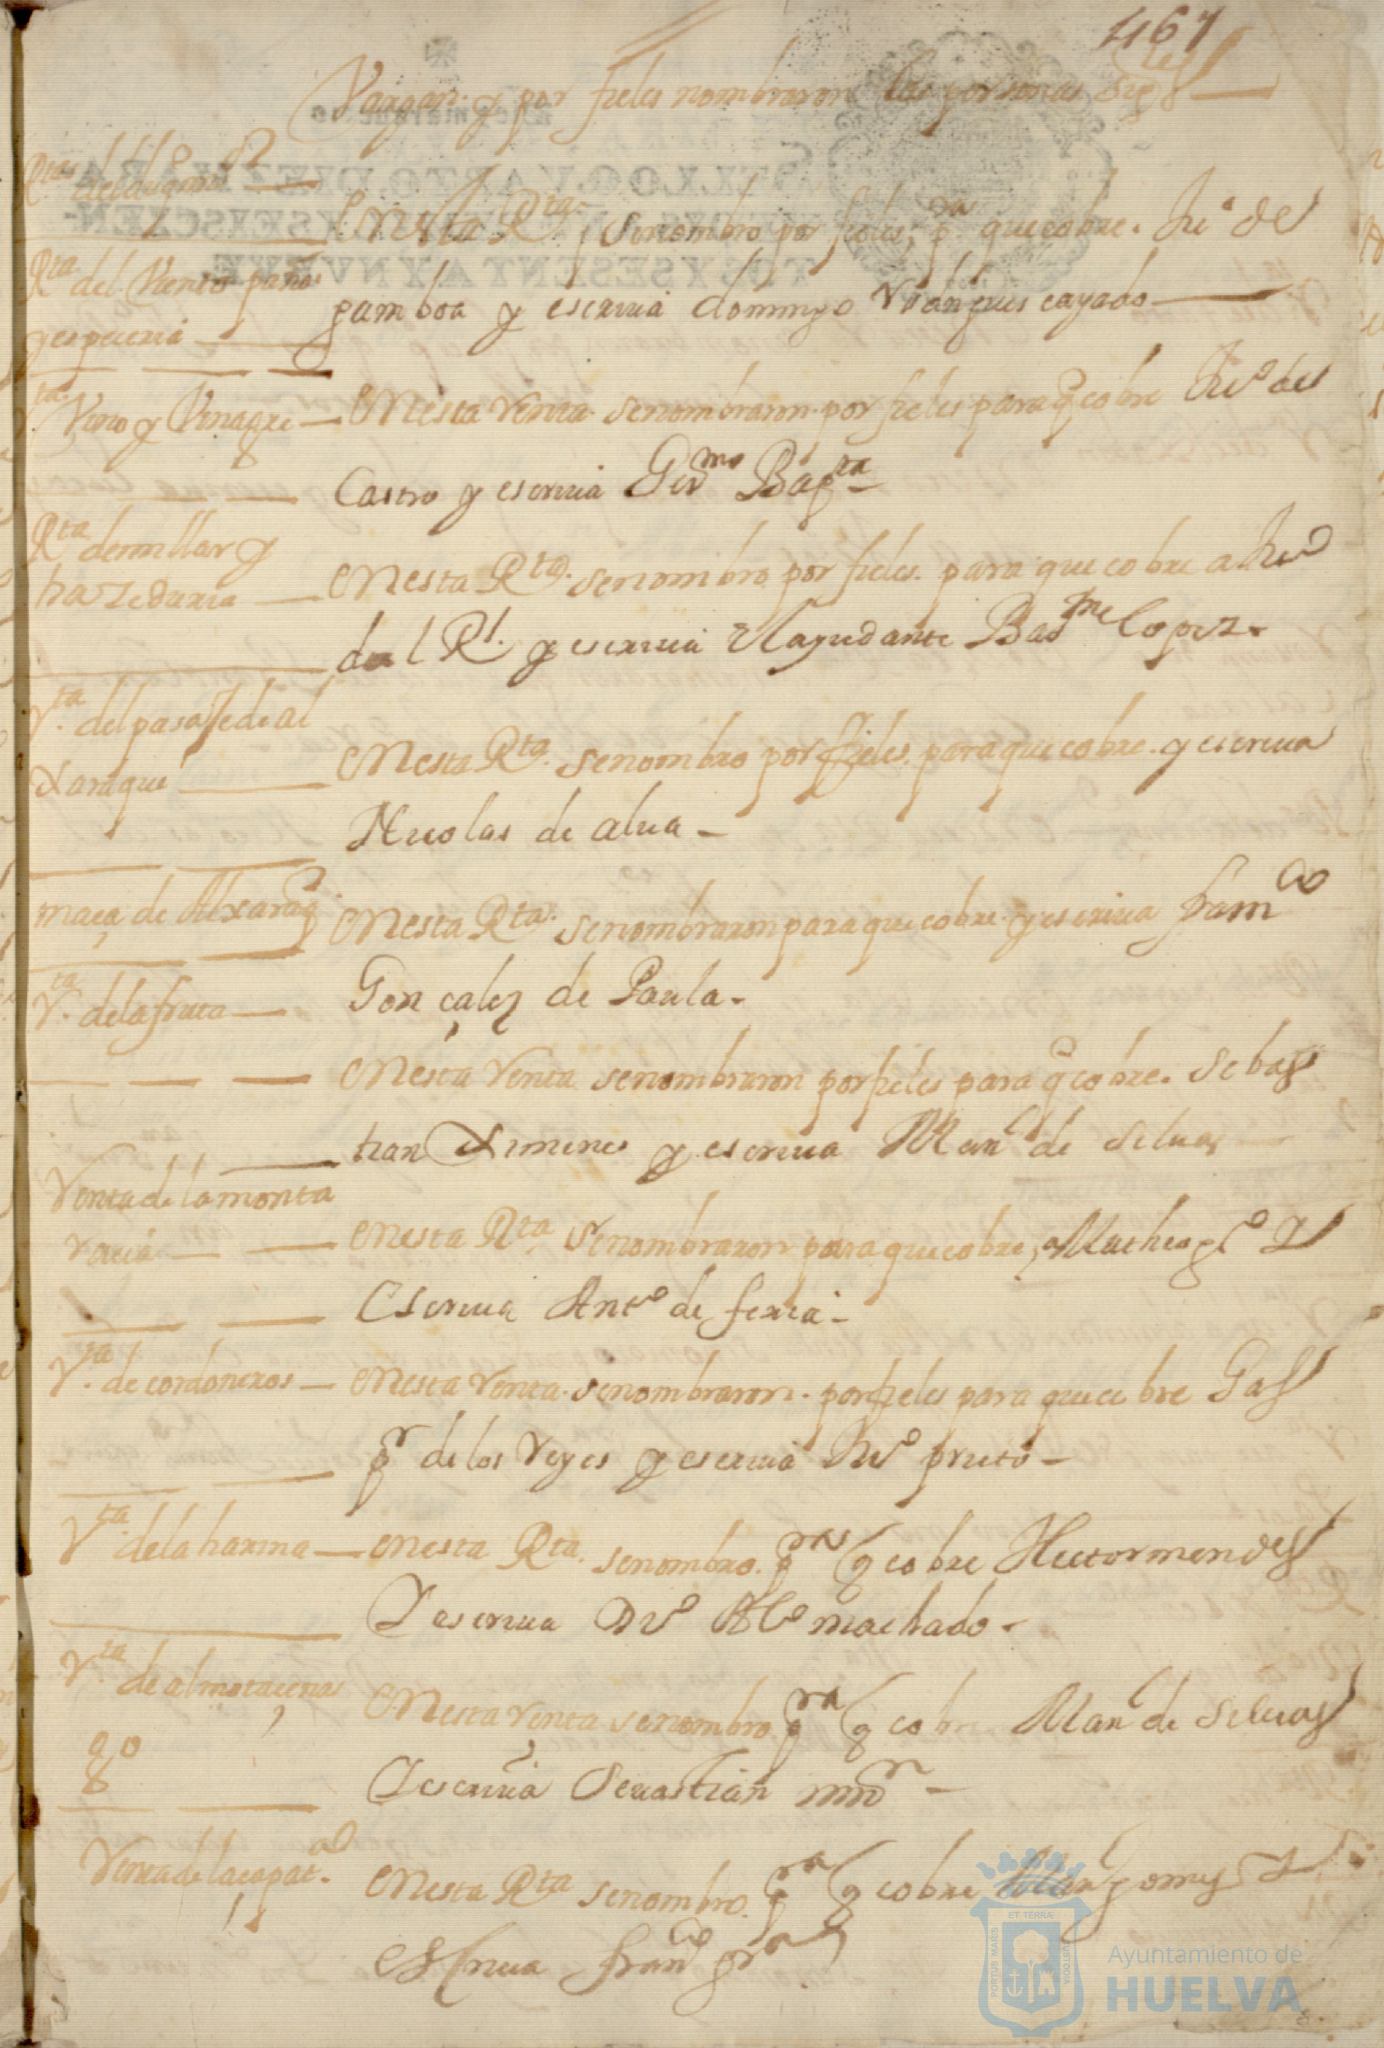 467
Vargas. y por fieles nombraron las personas sigtes
Rtas del duque
Rta del Viento paños
y especeria
En esta Rta. se nombro por fieles, pa que cobre. Juo de
gamboa y escriua domingo Viangues cayado
Vta. Vino y Vinagre
En esta renta. se nombraron. por fieles para q cobre Juo de
Castro y escriua Germo Bapta
Rta de millar y
hazeduria
En esta Rta. se nombro por fieles. para que cobre a Juo
del Rl. y escriua el ayudante Barme lopez.
rta del pasaje de al
xaraque
En esta Rta. se nombro por fieles. para que cobre. y escriua
Nicolas de alua
maça de Alxaraq
En esta Rta. se nombraron para que cobre. y escriua franco
Gonçales de Paula.
rta. de la fruta
En esta renta se nombraron por fieles para q cobre. Sebas
tian Ximenes y escriua Manl de siluas
Renta de la monta
racia
En esta Rta se nombraron para que cobre, a Matheo go Y
Escriua Anto de feria
rta. de cordoneros
En esta renta. se nombraron. por fieles para que cobre Gas
pr de los reyes y escriua Juo prieto
rta. de la harina
En esta Rta. se nombro. pra q cobre Hector mendes
Y escriua Do Alo machado
rta de almotacenas
go
En esta renta se nombro pra q cobre Manl de Siluas
Y escriua Seuastian
Renta de la
En esta Rta se nombro. pra q cobre Manl gomes Y
Escriua Franco gra
PORTUS MARIS ET TERRAE CUSTODIA
Ayuntamiento de
HUELVA